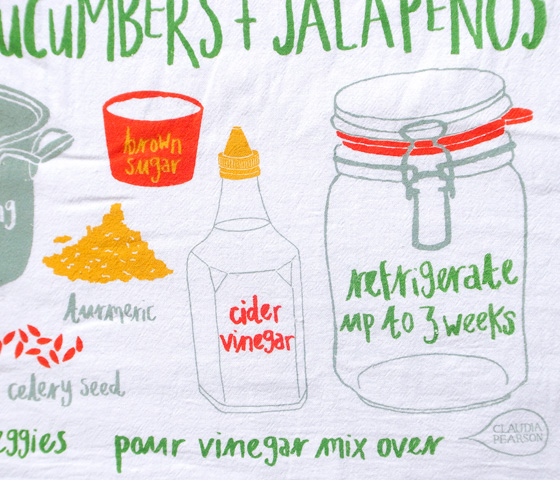 UCUMBERS + JALAPEÑOS
brown
sugar
g
turmeric
cider
vinegar
refrigerate
up to 3 weeks
celery seed
eggies
pour vinegar mix over
CLAUDIA
PEARSON